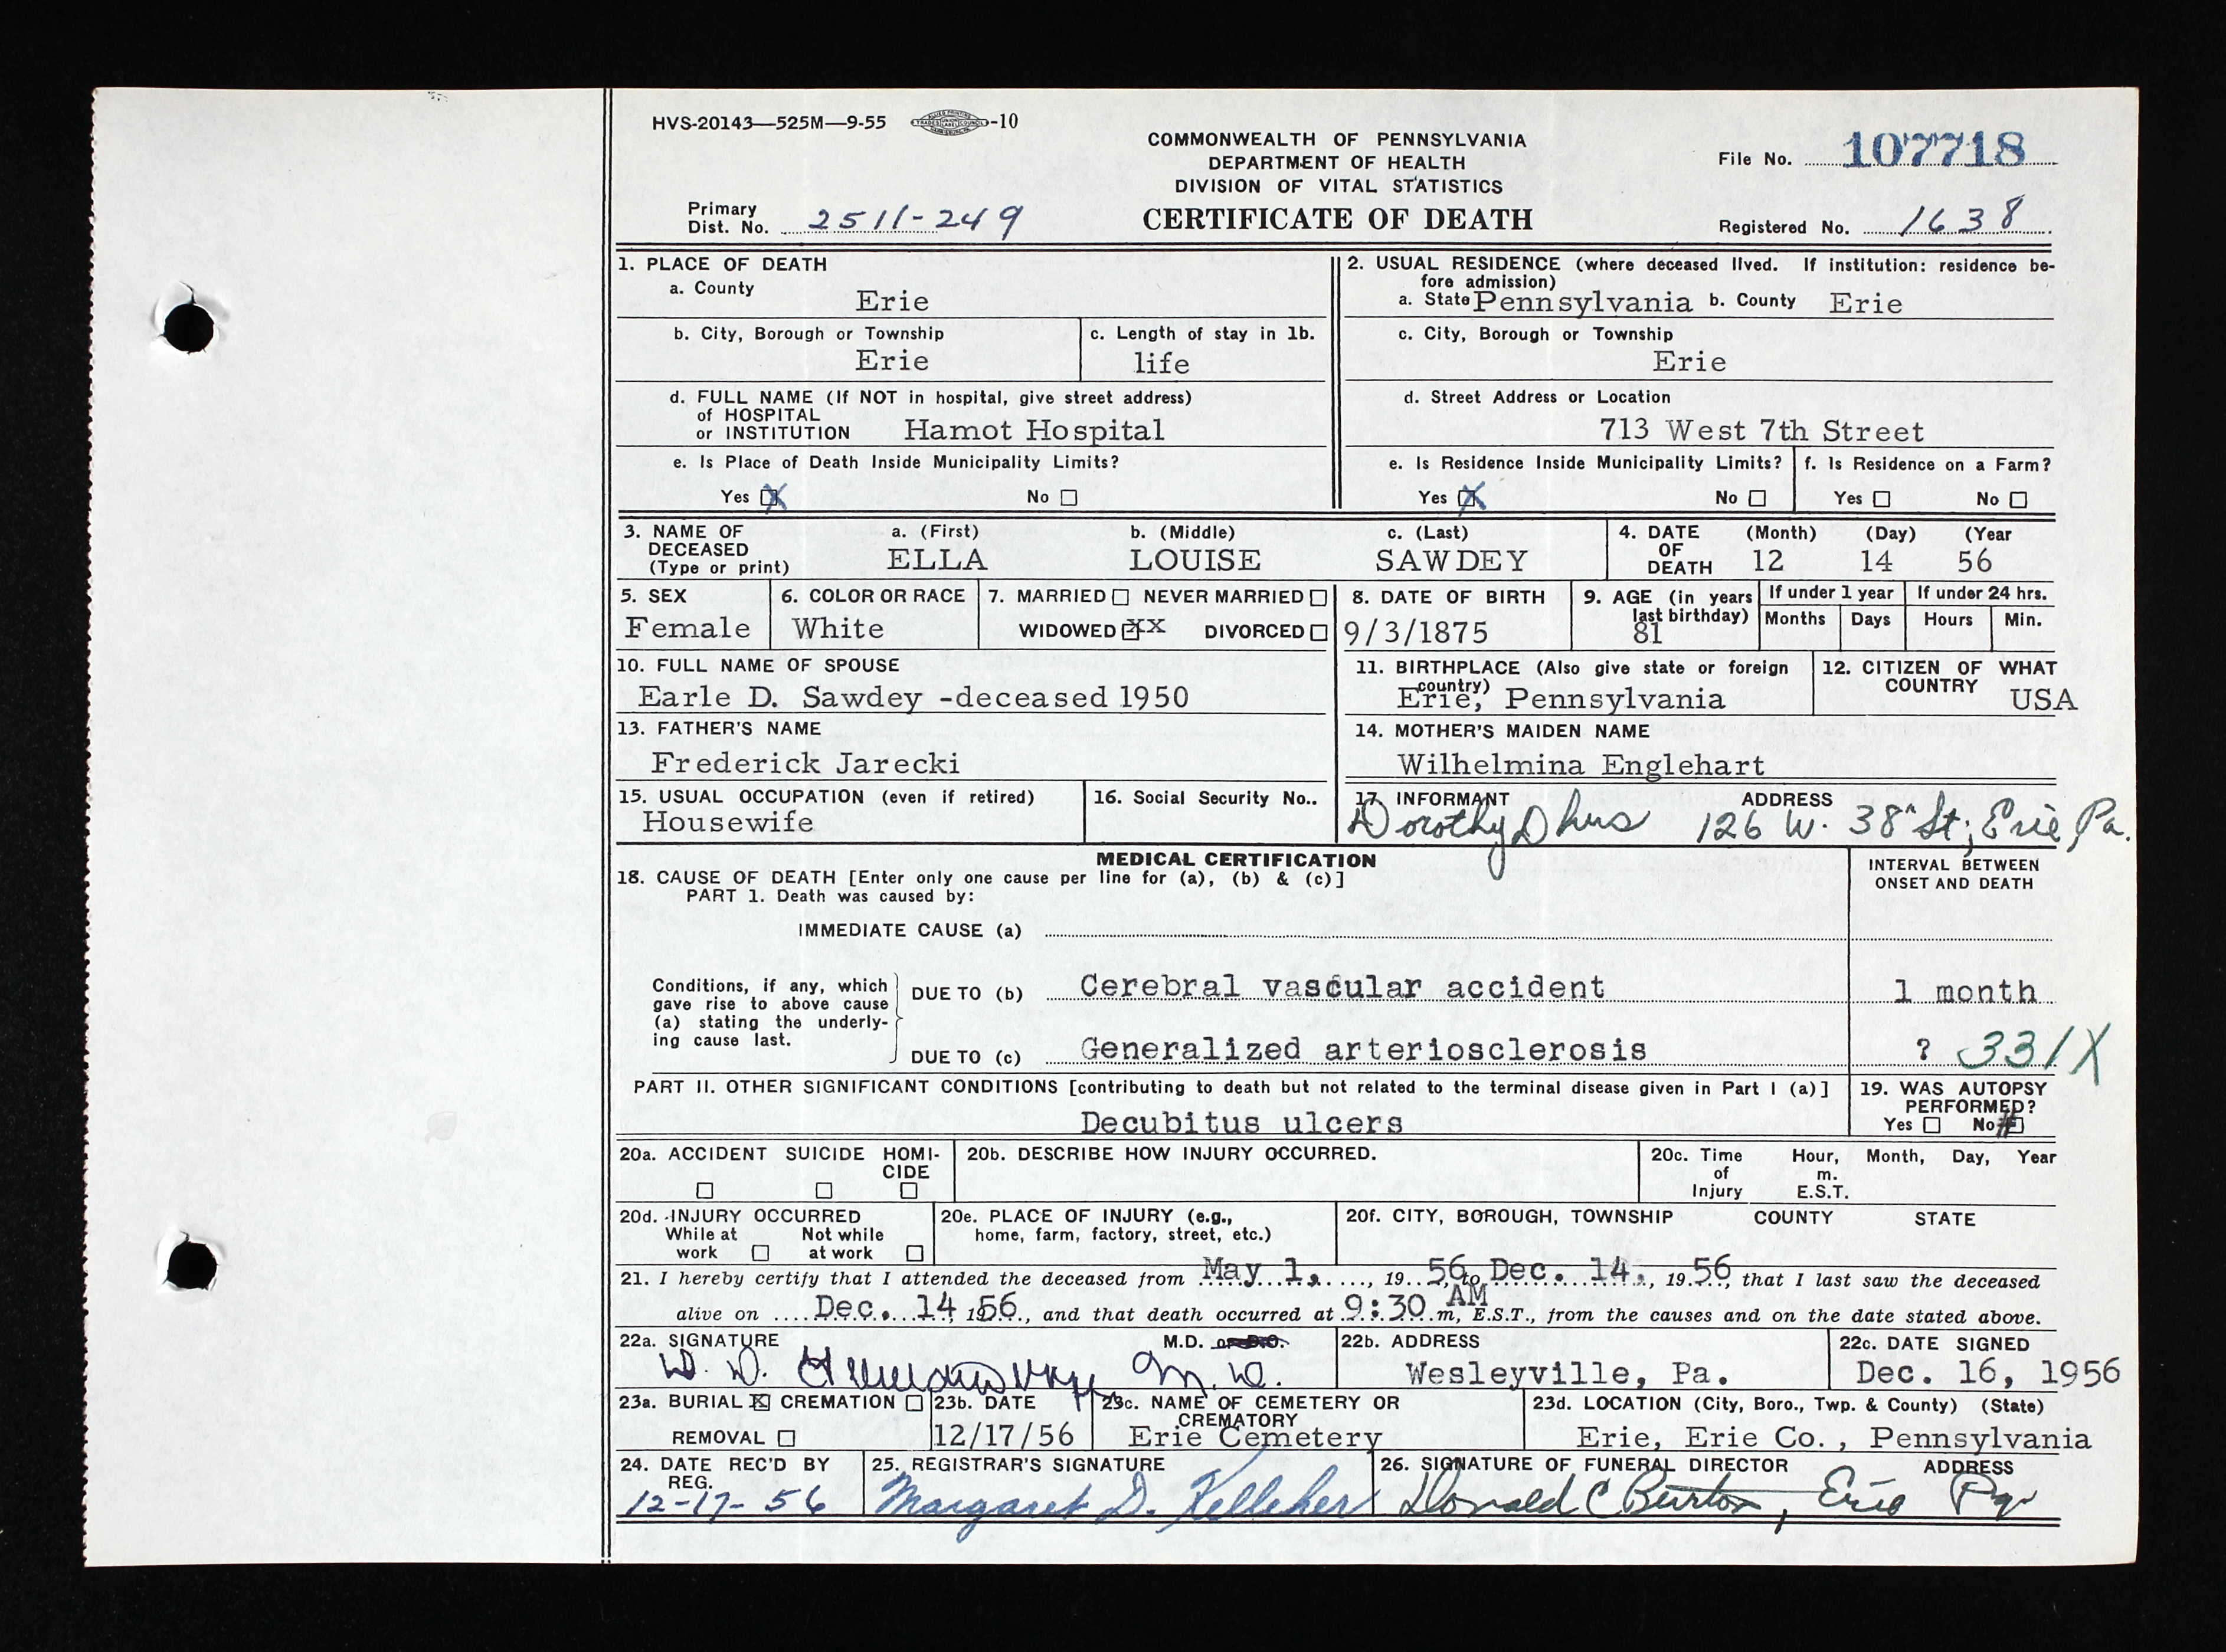 HVS-20143—525M—9-55 -10
COMMONWEALTH OF PENNSYLVANIA
DEPARTMENT OF HEALTH
DIVISION OF VITAL STATISTICS
CERTIFICATE OF DEATH
File No. 107718
Primary
Dist. No. 2511-249
Registered No. 1638
1. PLACE OF DEATH
a. County
Erie
b. City, Borough or Township
Erie
c. Length of stay in 1b.
life
d. FULL NAME (If NOT in hospital, give street address)
of HOSPITAL
or INSTITUTION Hamot Hospital
e. Is Place of Death Inside Municipality Limits?
Yes X No
2. USUAL RESIDENCE (where deceased lived. If institution: residence be-
fore admission)
a. State Pennsylvania b. County Erie
c. City, Borough or Township
Erie
d. Street Address or Location
713 West 7th Street
e. Is Residence Inside Municipality Limits?
Yes X No
f. Is Residence on a Farm?
Yes No
3. NAME OF
DECEASED
(Type or print)
a. (First)
ELLA
b. (Middle)
LOUISE
c. (Last)
SAWDEY
4. DATE
OF
DEATH
(Month) (Day) (Year
12 14 56
5. SEX
Female
6. COLOR OR RACE
White
7. MARRIED NEVER MARRIED
WIDOWED XX DIVORCED
8. DATE OF BIRTH
9/3/1875
9. AGE (in years
last birthday)
81
If under 1 year
Months Days
If under 24 hrs.
Hours Min.
10. FULL NAME OF SPOUSE
Earle D. Sawdey -deceased 1950
11. BIRTHPLACE (Also give state or foreign
country)
Erie, Pennsylvania
12. CITIZEN OF WHAT
COUNTRY
USA
13. FATHER'S NAME
Frederick Jarecki
14. MOTHER'S MAIDEN NAME
Wilhelmina Englehart
15. USUAL OCCUPATION (even if retired)
Housewife
16. Social Security No..
17. INFORMANT ADDRESS
Dorothy 126 W. 38 St; Erie Pa.
MEDICAL CERTIFICATION
18. CAUSE OF DEATH [Enter only one cause per line for (a), (b) & (c)]
PART 1. Death was caused by:
INTERVAL BETWEEN
ONSET AND DEATH
IMMEDIATE CAUSE (a)
Conditions, if any, which
gave rise to above cause
(a) stating the underly-
ing cause last.
DUE TO (b) Cerebral vascular accident 1 month
DUE TO (c) Generalized arteriosclerosis ? 331X
PART II. OTHER SIGNIFICANT CONDITIONS [contributing to death but not related to the terminal disease given in Part I (a)]
Decubitus ulcers
19. WAS AUTOPSY
PERFORMED?
Yes No #
20a. ACCIDENT SUICIDE HOMI-
CIDE
20b. DESCRIBE HOW INJURY OCCURRED.
20c. Time
of
Injury
Hour, Month, Day, Year
m.
E.S.T.
20d. INJURY OCCURRED
While at
work
Not while
at work
20e. PLACE OF INJURY (e.g.,
home, farm, factory, street, etc.)
20f. CITY, BOROUGH, TOWNSHIP COUNTY STATE
21. I hereby certify that I attended the deceased from May 1, , 19 56, to Dec. 14, , 19 56, that I last saw the deceased
alive on Dec. 14, 1956, and that death occurred at 9:30 AM m, E.S.T., from the causes and on the date stated above.
22a. SIGNATURE M.D. or D.O.
W. D. M.D.
22b. ADDRESS
Wesleyville, Pa.
22c. DATE SIGNED
Dec. 16, 1956
23a. BURIAL X CREMATION
REMOVAL
23b. DATE
12/17/56
23c. NAME OF CEMETERY OR
CREMATORY
Erie Cemetery
23d. LOCATION (City, Boro., Twp. & County) (State)
Erie, Erie Co., Pennsylvania
24. DATE REC'D BY
REG.
12-17-56
25. REGISTRAR'S SIGNATURE
Margaret D. Kelleher
26. SIGNATURE OF FUNERAL DIRECTOR ADDRESS
Donald C Burton, Erie Pa